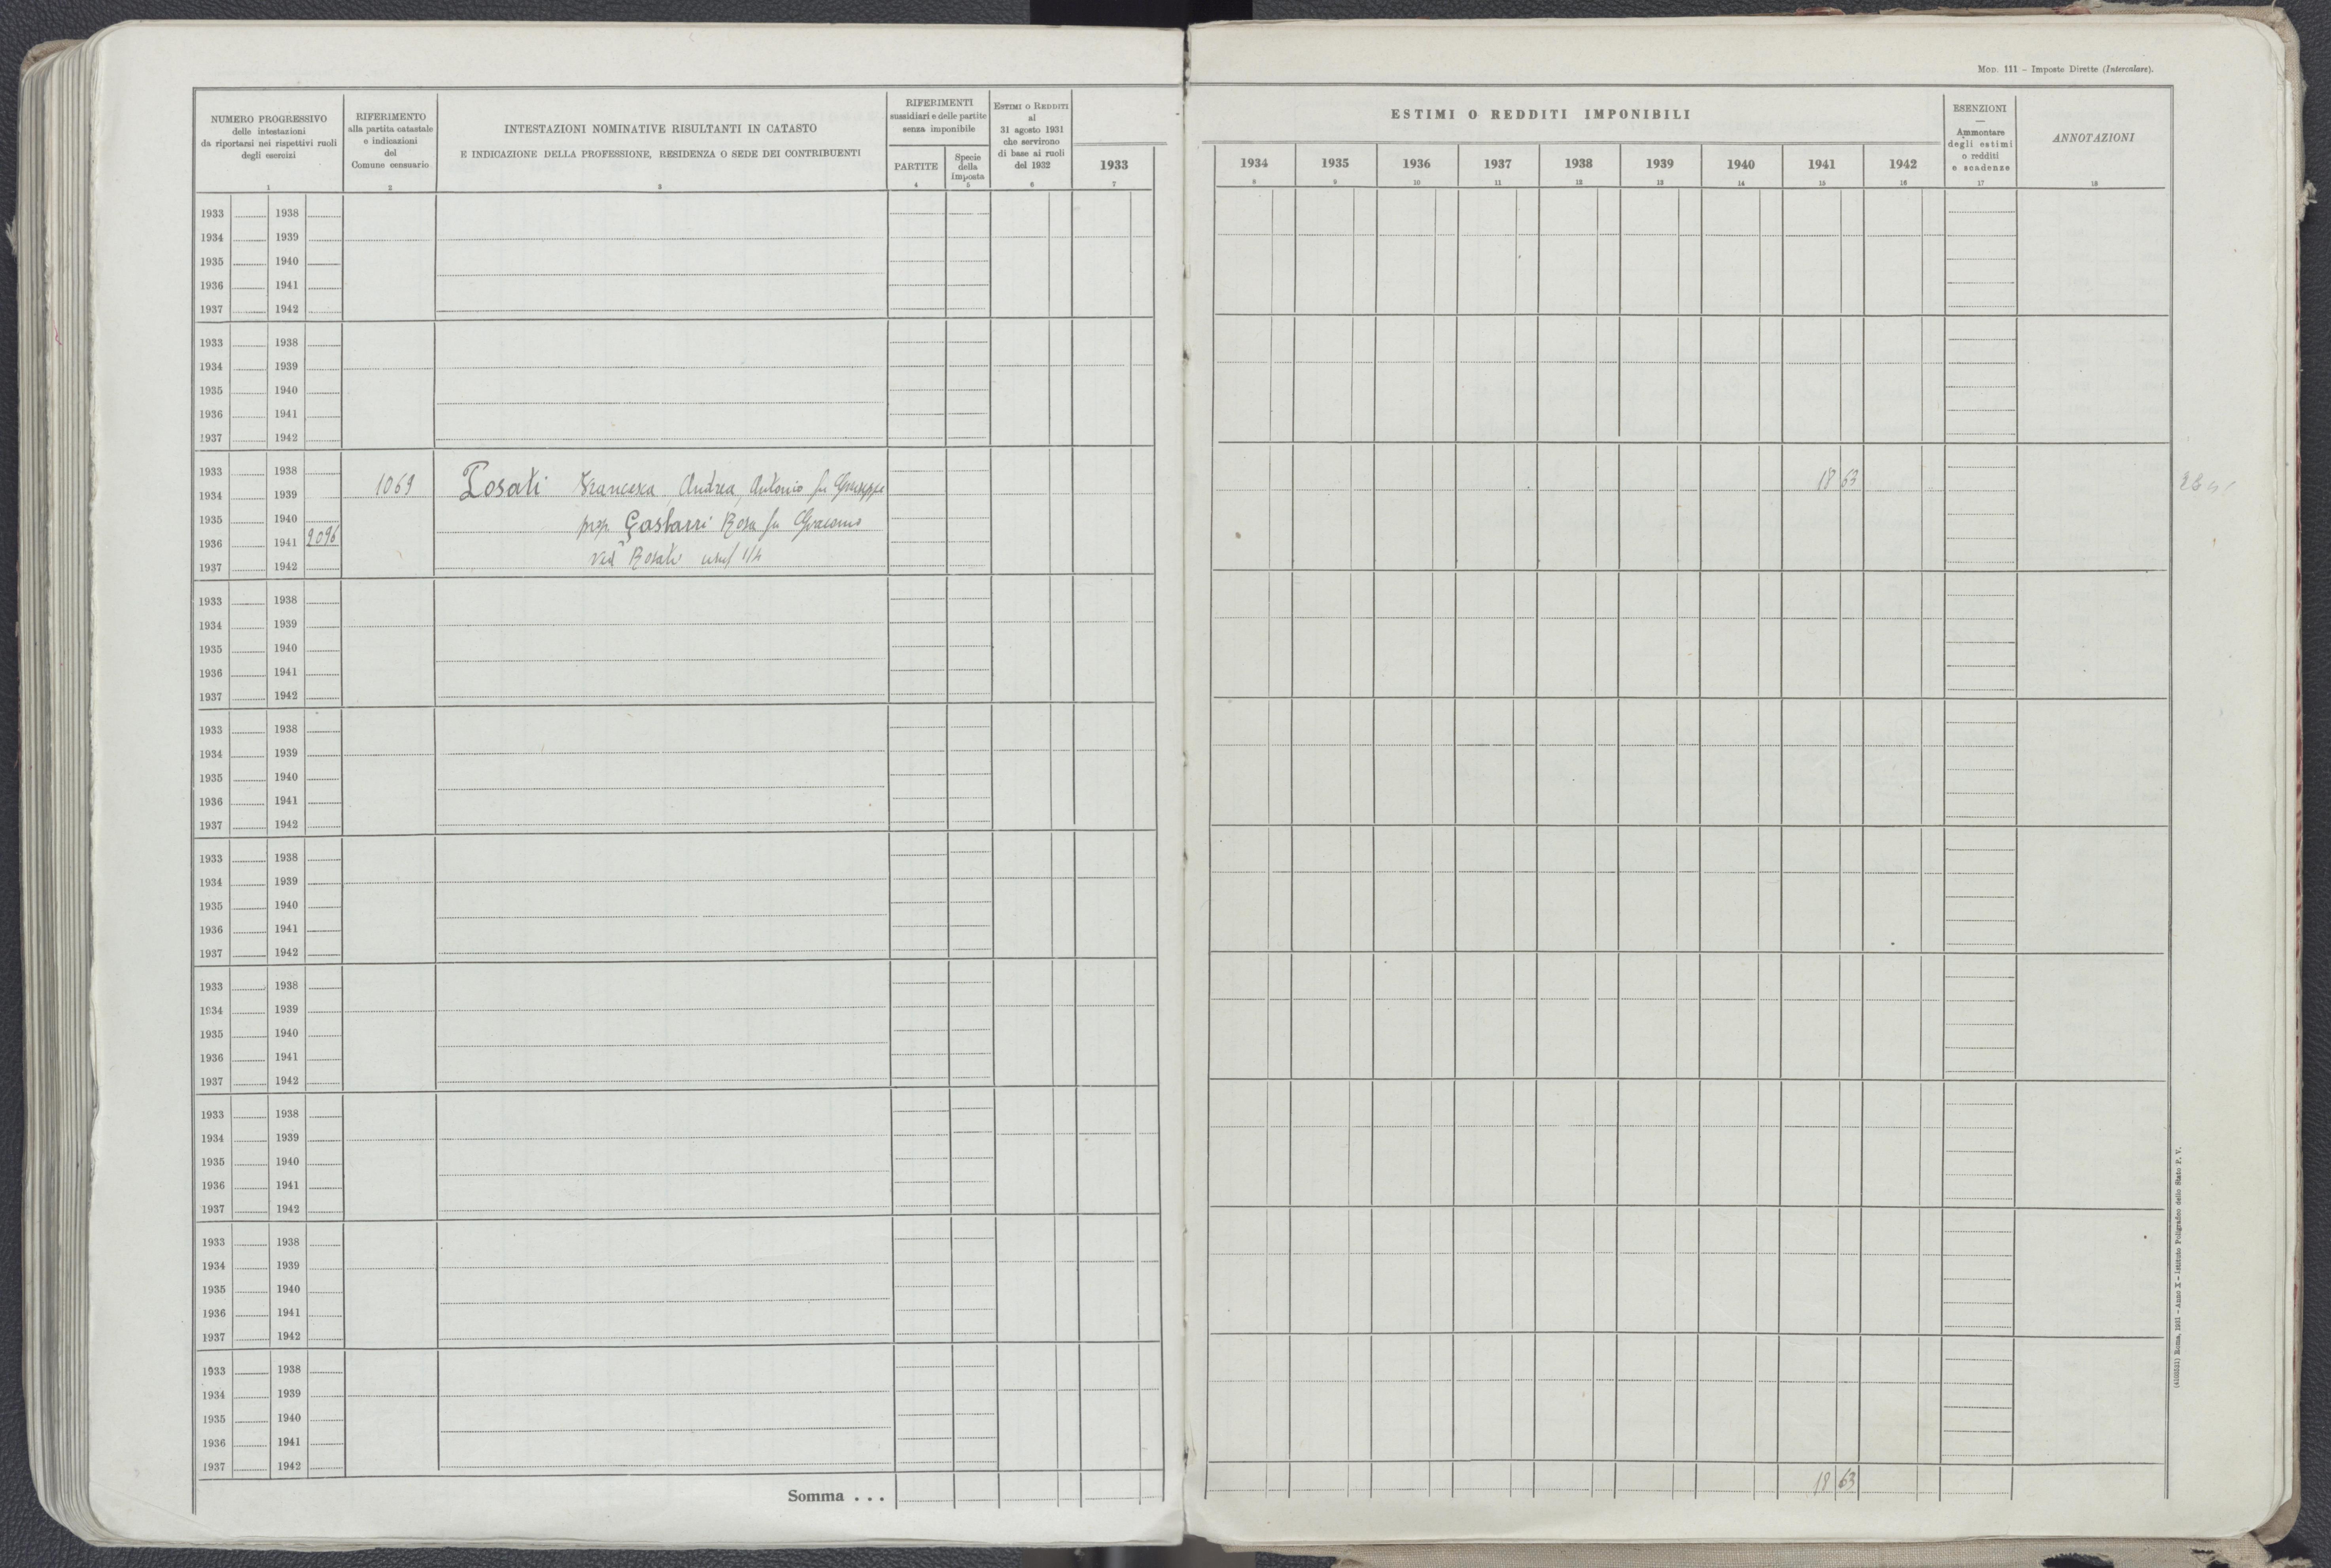 Mod. 111 – Imposte Dirette (Intercalare).
NUMERO PROGRESSIVO
delle intestazioni
da riportarsi nei rispettivi ruoli
degli esercizi
1
RIFERIMENTO
alla partita catastale
e indicazioni
del
Comune censuario
2
INTESTAZIONI NOMINATIVE RISULTANTI IN CATASTO
E INDICAZIONE DELLA PROFESSIONE, RESIDENZA O SEDE DEI CONTRIBUENTI
3
RIFERIMENTI
sussidiari e delle partite
senza imponibile
PARTITE
4
Specie
della
imposta
5
Estimi o Redditi
al
31 agosto 1931
che servirono
di base ai ruoli
del 1932
6
1933
7
ESTIMI O REDDITI IMPONIBILI
1934 1935 1936 1937 1938 1939 1940 1941 1942
8 9 10 11 12 13 14 15 16
ESENZIONI
—
Ammontare
degli estimi
o redditi
e scadenze
17
ANNOTAZIONI
18
1933 1938
1934 1939
1935 1940
1936 1941
1937 1942
1933 1938
1934 1939
1935 1940
1936 1941
1937 1942
1933 1938
1934 1939 1069 Rosati Francesca, Andrea, Antonio fu Giuseppe 18 63
1935 1940 prop. Gasbarri Rosa fu Giacomo
1936 1941 2096
1937 1942 ved Rosati usuf 1/4
1933 1938
1934 1939
1935 1940
1936 1941
1937 1942
1933 1938
1934 1939
1935 1940
1936 1941
1937 1942
1933 1938
1934 1939
1935 1940
1936 1941
1937 1942
1933 1938
1934 1939
1935 1940
1936 1941
1937 1942
1933 1938
1934 1939
1935 1940
1936 1941
1937 1942
1933 1938
1934 1939
1935 1940
1936 1941
1937 1942
1933 1938
1934 1939
1935 1940
1936 1941
1937 1942
Somma . . . 18 63
(4103531) Roma, 1931 – Anno X – Istituto Poligrafico dello Stato P. V.